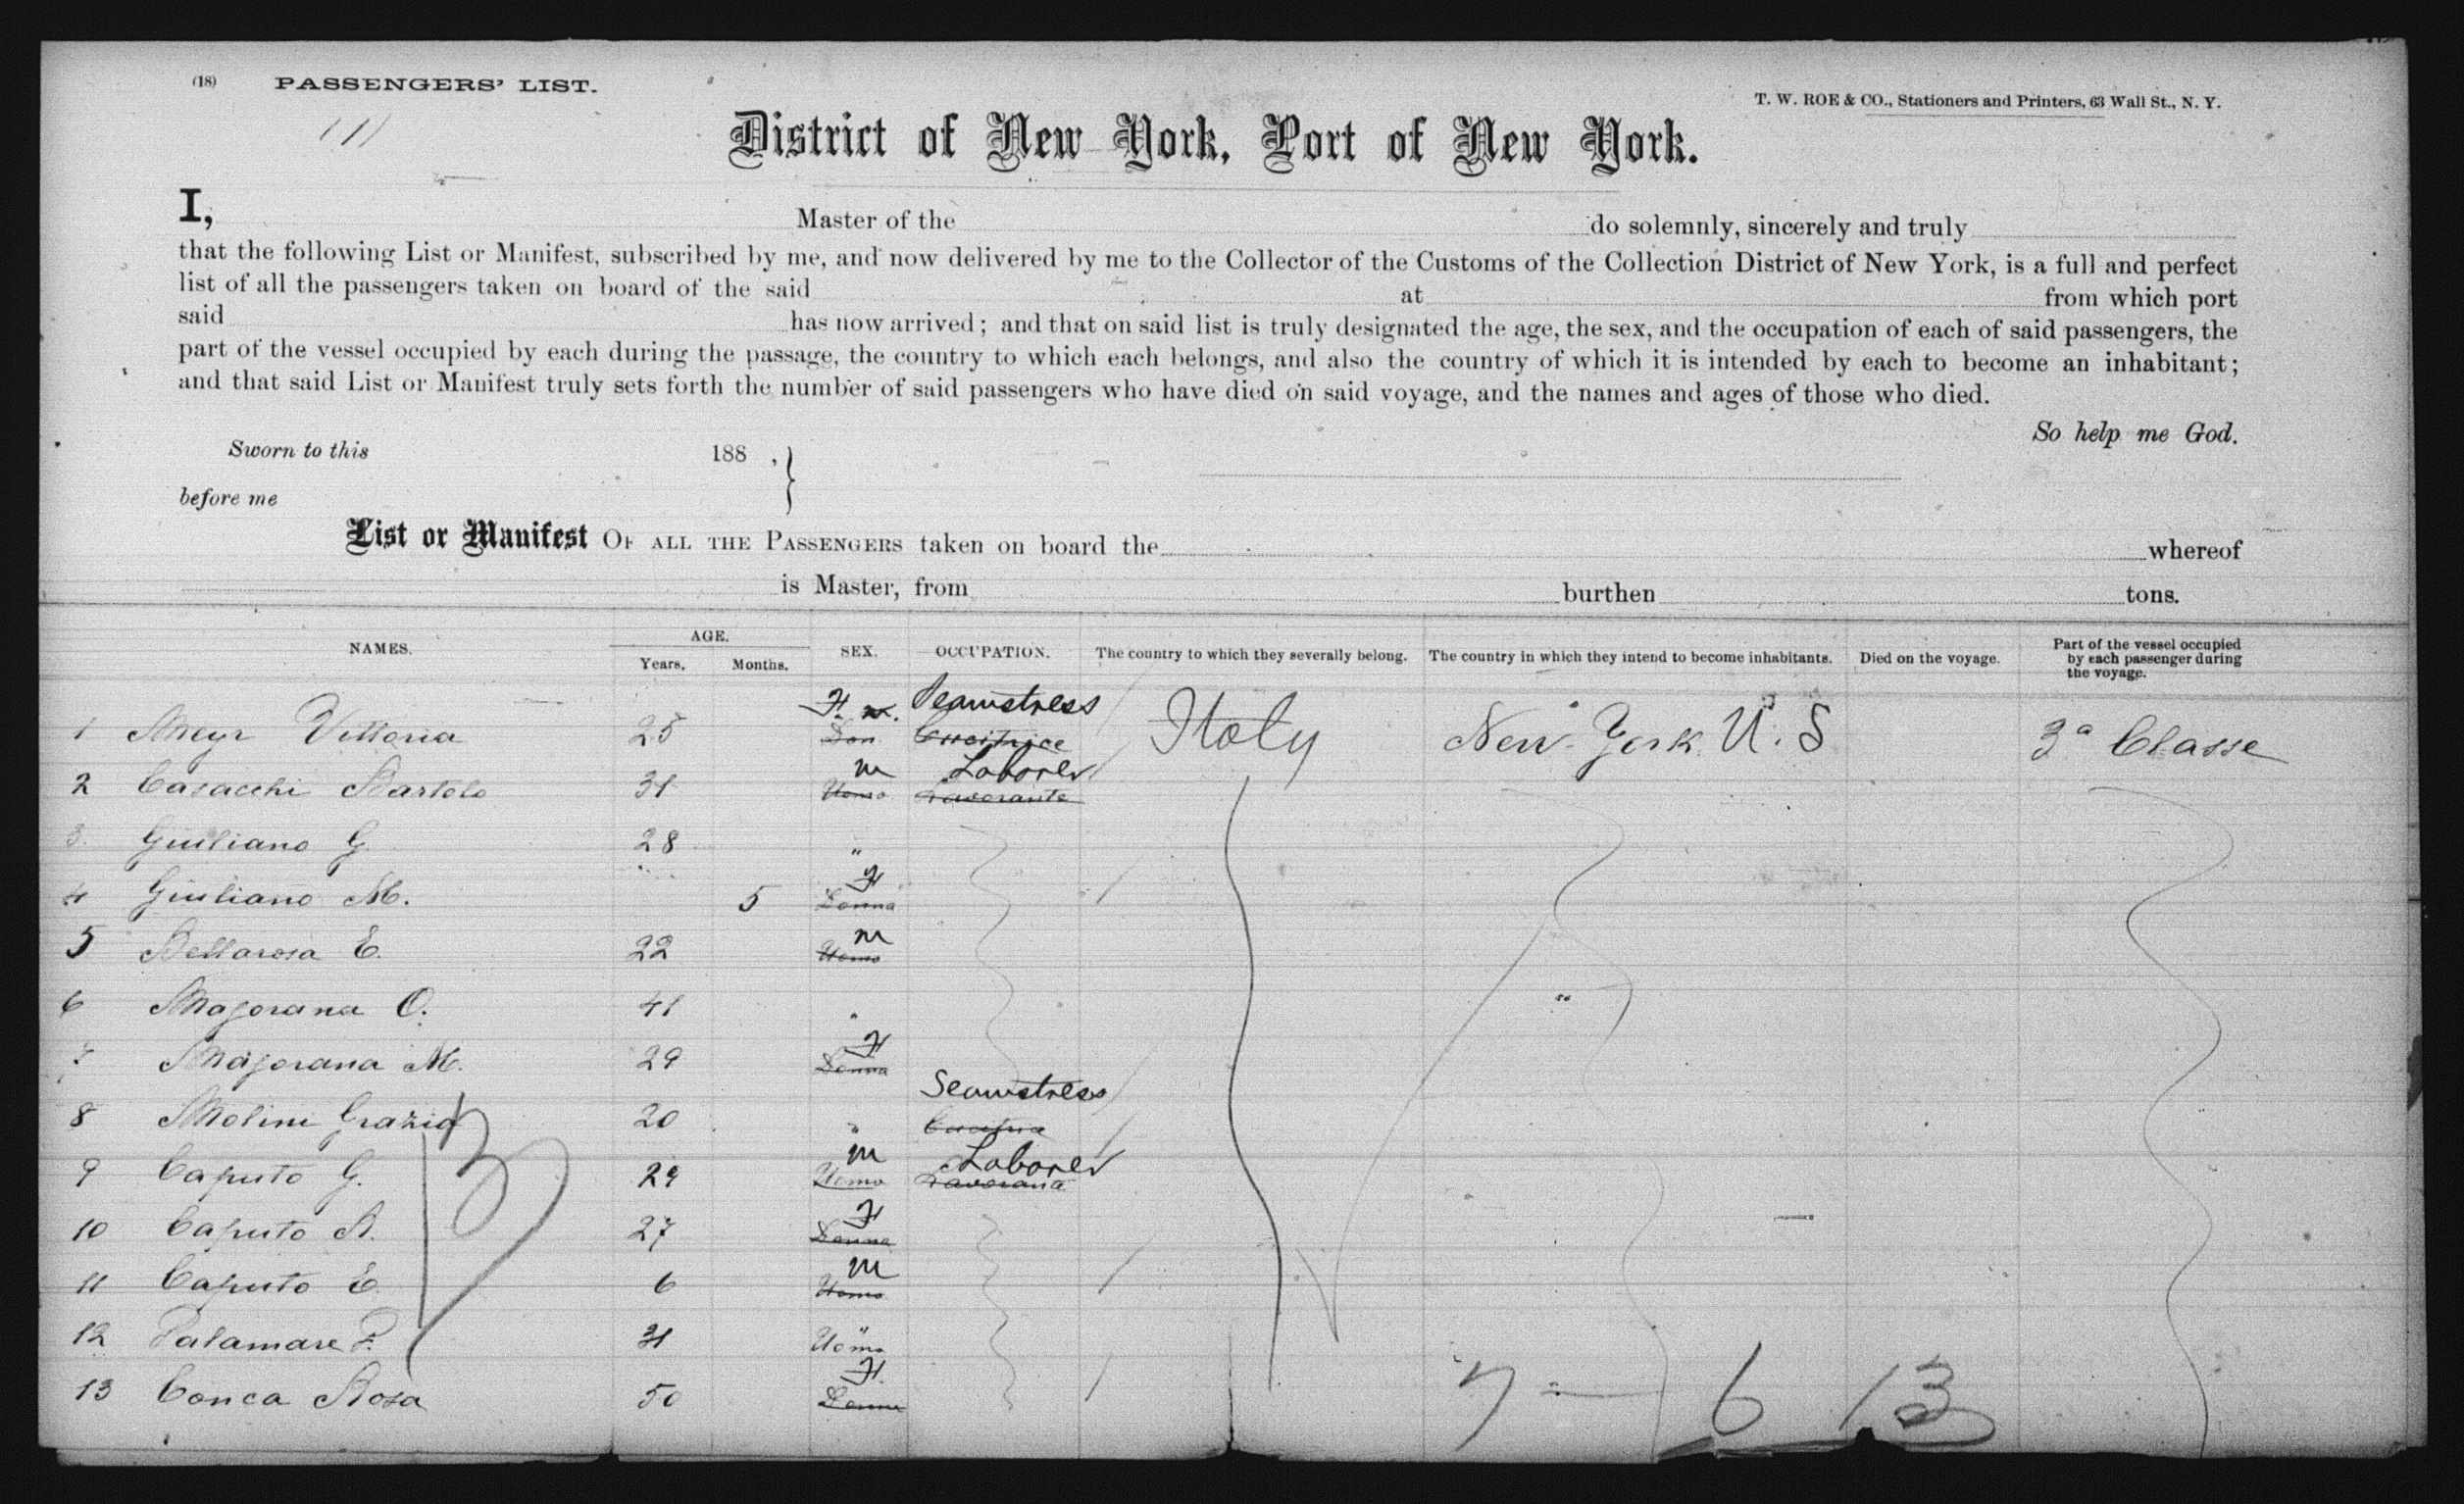 (18) PASSENGERS' LIST.
T. W. ROE & CO., Stationers and Printers, 63 Wall St., N. Y.
(1)
District of New York, Port of New York.
I, Master of the do solemnly, sincerely and truly
that the following List or Manifest, subscribed by me, and now delivered by me to the Collector of the Customs of the Collection District of New York, is a full and perfect
list of all the passengers taken on board of the said at from which port
said has now arrived; and that on said list is truly designated the age, the sex, and the occupation of each of said passengers, the
part of the vessel occupied by each during the passage, the country to which each belongs, and also the country of which it is intended by each to become an inhabitant;
and that said List or Manifest truly sets forth the number of said passengers who have died on said voyage, and the names and ages of those who died.
So help me God.
Sworn to this 188 , }
before me
List or Manifest OF ALL THE PASSENGERS taken on board the whereof
is Master, from burthen tons.
NAMES. AGE. Years. Months. SEX. OCCUPATION. The country to which they severally belong. The country in which they intend to become inhabitants. Died on the voyage. Part of the vessel occupied by each passenger during the voyage.
1 Meyr Vittoria 25 F. Don Seamstress Cucitrice Italy New York U. S 3a Classe
2 Casacchi Bartolo 31 m Uomo Laborer Lavorante
3 Giuliano G. 28 "
4 Giuliano M. 5 F Donna
5 Bellarosa E. 22 m Uomo
6 Majorana O. 41 " "
7 Majorana M. 29 F Donna
8 Molini Grazia 20 " Seamstress
9 Caputo G. 29 m Uomo Laborer
10 Caputo A. 27 F Donna
11 Caputo E. 6 m Uomo
12 Palamare P. 31 " Uomo
13 Conca Rosa 50 F. Donna
7 - 6 13